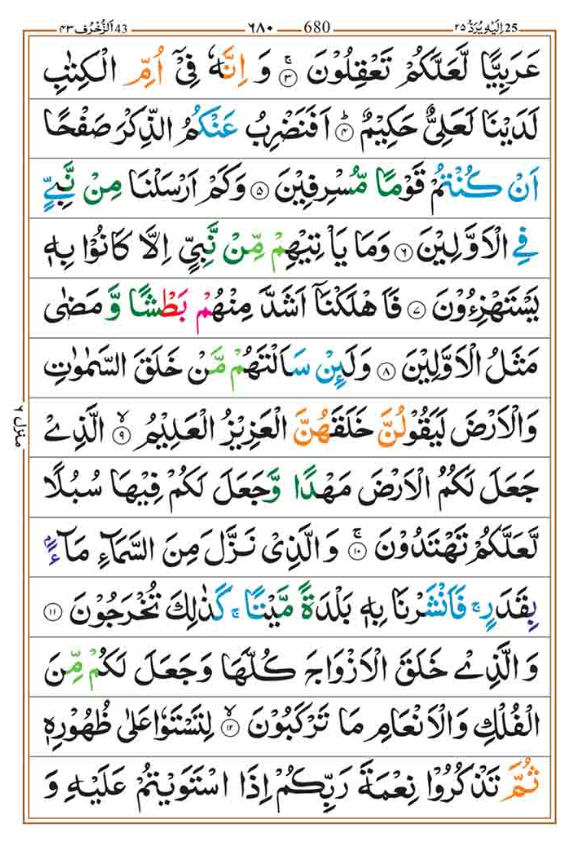 25 اِلَيْهِ يُرَدُّ ٢٥
680 ٦٨٠
43 اَلزُّخْرُف ٤٣
عَرَبِيًّا لَّعَلَّكُمْ تَعْقِلُوْنَ ۚ‏ ٣ وَ اِنَّهٗ فِىْۤ اُمِّ الْكِتٰبِ
لَدَيْنَا لَعَلِىٌّ حَكِيْمٌ ؕ‏ ٤ اَفَنَضْرِبُ عَنْكُمُ الذِّكْرَ صَفْحًا
اَنْ كُنْتُمْ قَوْمًا مُّسْرِفِيْنَ‏ ٥ وَكَمْ اَرْسَلْنَا مِنْ نَّبِىٍّ
فِى الْاَوَّلِيْنَ‏ ٦ وَمَا يَاْتِيْهِمْ مِّنْ نَّبِىٍّ اِلَّا كَانُوْا بِهٖ
يَسْتَهْزِءُوْنَ‏ ٧ فَاَهْلَكْنَاۤ اَشَدَّ مِنْهُمْ بَطْشًا وَّ مَضٰى
مَثَلُ الْاَوَّلِيْنَ‏ ٨ وَلَئِنْ سَاَلْتَهُمْ مَّنْ خَلَقَ السَّمٰوٰتِ
وَالْاَرْضَ لَيَقُوْلُنَّ خَلَقَهُنَّ الْعَزِيْزُ الْعَلِيْمُ ۙ‏ ٩ الَّذِىْ
جَعَلَ لَكُمُ الْاَرْضَ مَهْدًا وَّجَعَلَ لَكُمْ فِيْهَا سُبُلًا
لَّعَلَّكُمْ تَهْتَدُوْنَ ۚ‏ ١٠ وَالَّذِىْ نَزَّلَ مِنَ السَّمَآءِ مَآءًۢ
بِقَدَرٍ ۚ فَاَنْشَرْنَا بِهٖ بَلْدَةً مَّيْتًا ۚ كَذٰلِكَ تُخْرَجُوْنَ‏ ١١
وَ الَّذِىْ خَلَقَ الْاَزْوَاجَ كُلَّهَا وَجَعَلَ لَكُمْ مِّنَ
الْفُلْكِ وَالْاَنْعَامِ مَا تَرْكَبُوْنَ ۙ‏ ١٢ لِتَسْتَوٗا عَلٰى ظُهُوْرِهٖ
ثُمَّ تَذْكُرُوْا نِعْمَةَ رَبِّكُمْ اِذَا اسْتَوَيْتُمْ عَلَيْهِ وَ
منزل ٦